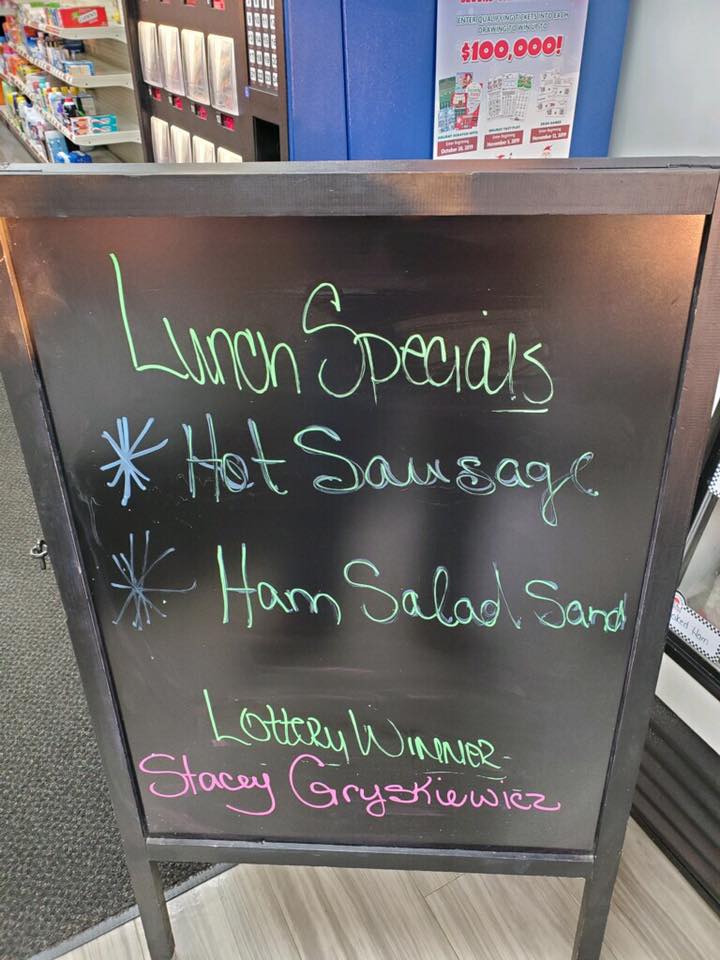 ENTER QUALIFYING TICKETS INTO EACH
DRAWING TO WIN UP TO
$100,000!
Enter Beginning
October 28, 2019
Lunch Specials
Hot Sausage
Ham Salad Sand
Lottery Winner-
Stacey Gryskiewicz
Ham